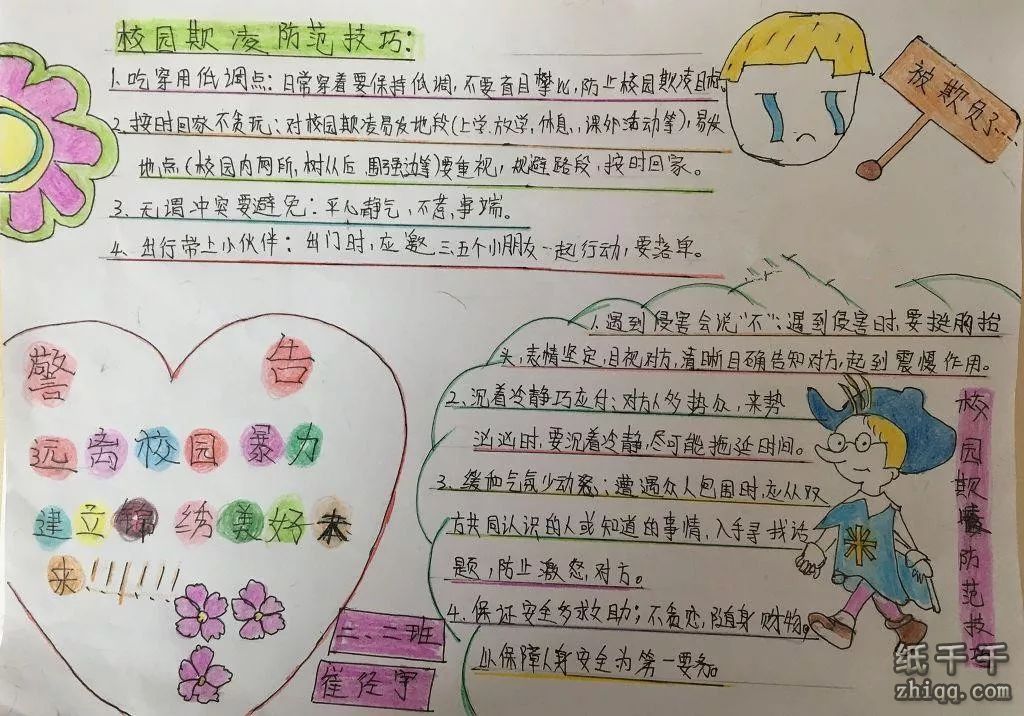 校园欺凌防范技巧:
1.吃穿用低调点:日常穿着要保持低调,不要盲目攀比,防止校园欺凌目标。
2.按时回家不贪玩:对校园欺凌易发地段(上学.放学,休息,课外活动等),易发
地点(校园内厕所,树从后 围强边等)要重视,规避路段,按时回家。
3.无谓冲突要避免:平心静气,不惹事端。
4、出行带上小伙伴:出门时,应邀三五个小朋友一起行动,要落单。
被欺负了
警告
远离校园暴力
建立锦绣美好未
来!!!!!!
二、二班
崔径宇
1.遇到侵害会说“不”:遇到侵害时,要挺胸抬
头,表情坚定,目视对方,清晰目确告知对方,起到震慑作用。
2、沉着冷静巧应付:对方人多势众,来势
汹汹时,要沉着冷静,尽可能拖延时间。
3、缓和气氛少动怒:遭遇众人包围时,应从双
方共同认识的人或知道的事情,入手寻找话
题,防止激怒,对方。
4、保证安全多救助;不贪恋,随身财物。
以保障人身安全为第一要务
校园欺凌防范技巧
纸千千
zhiqq.com